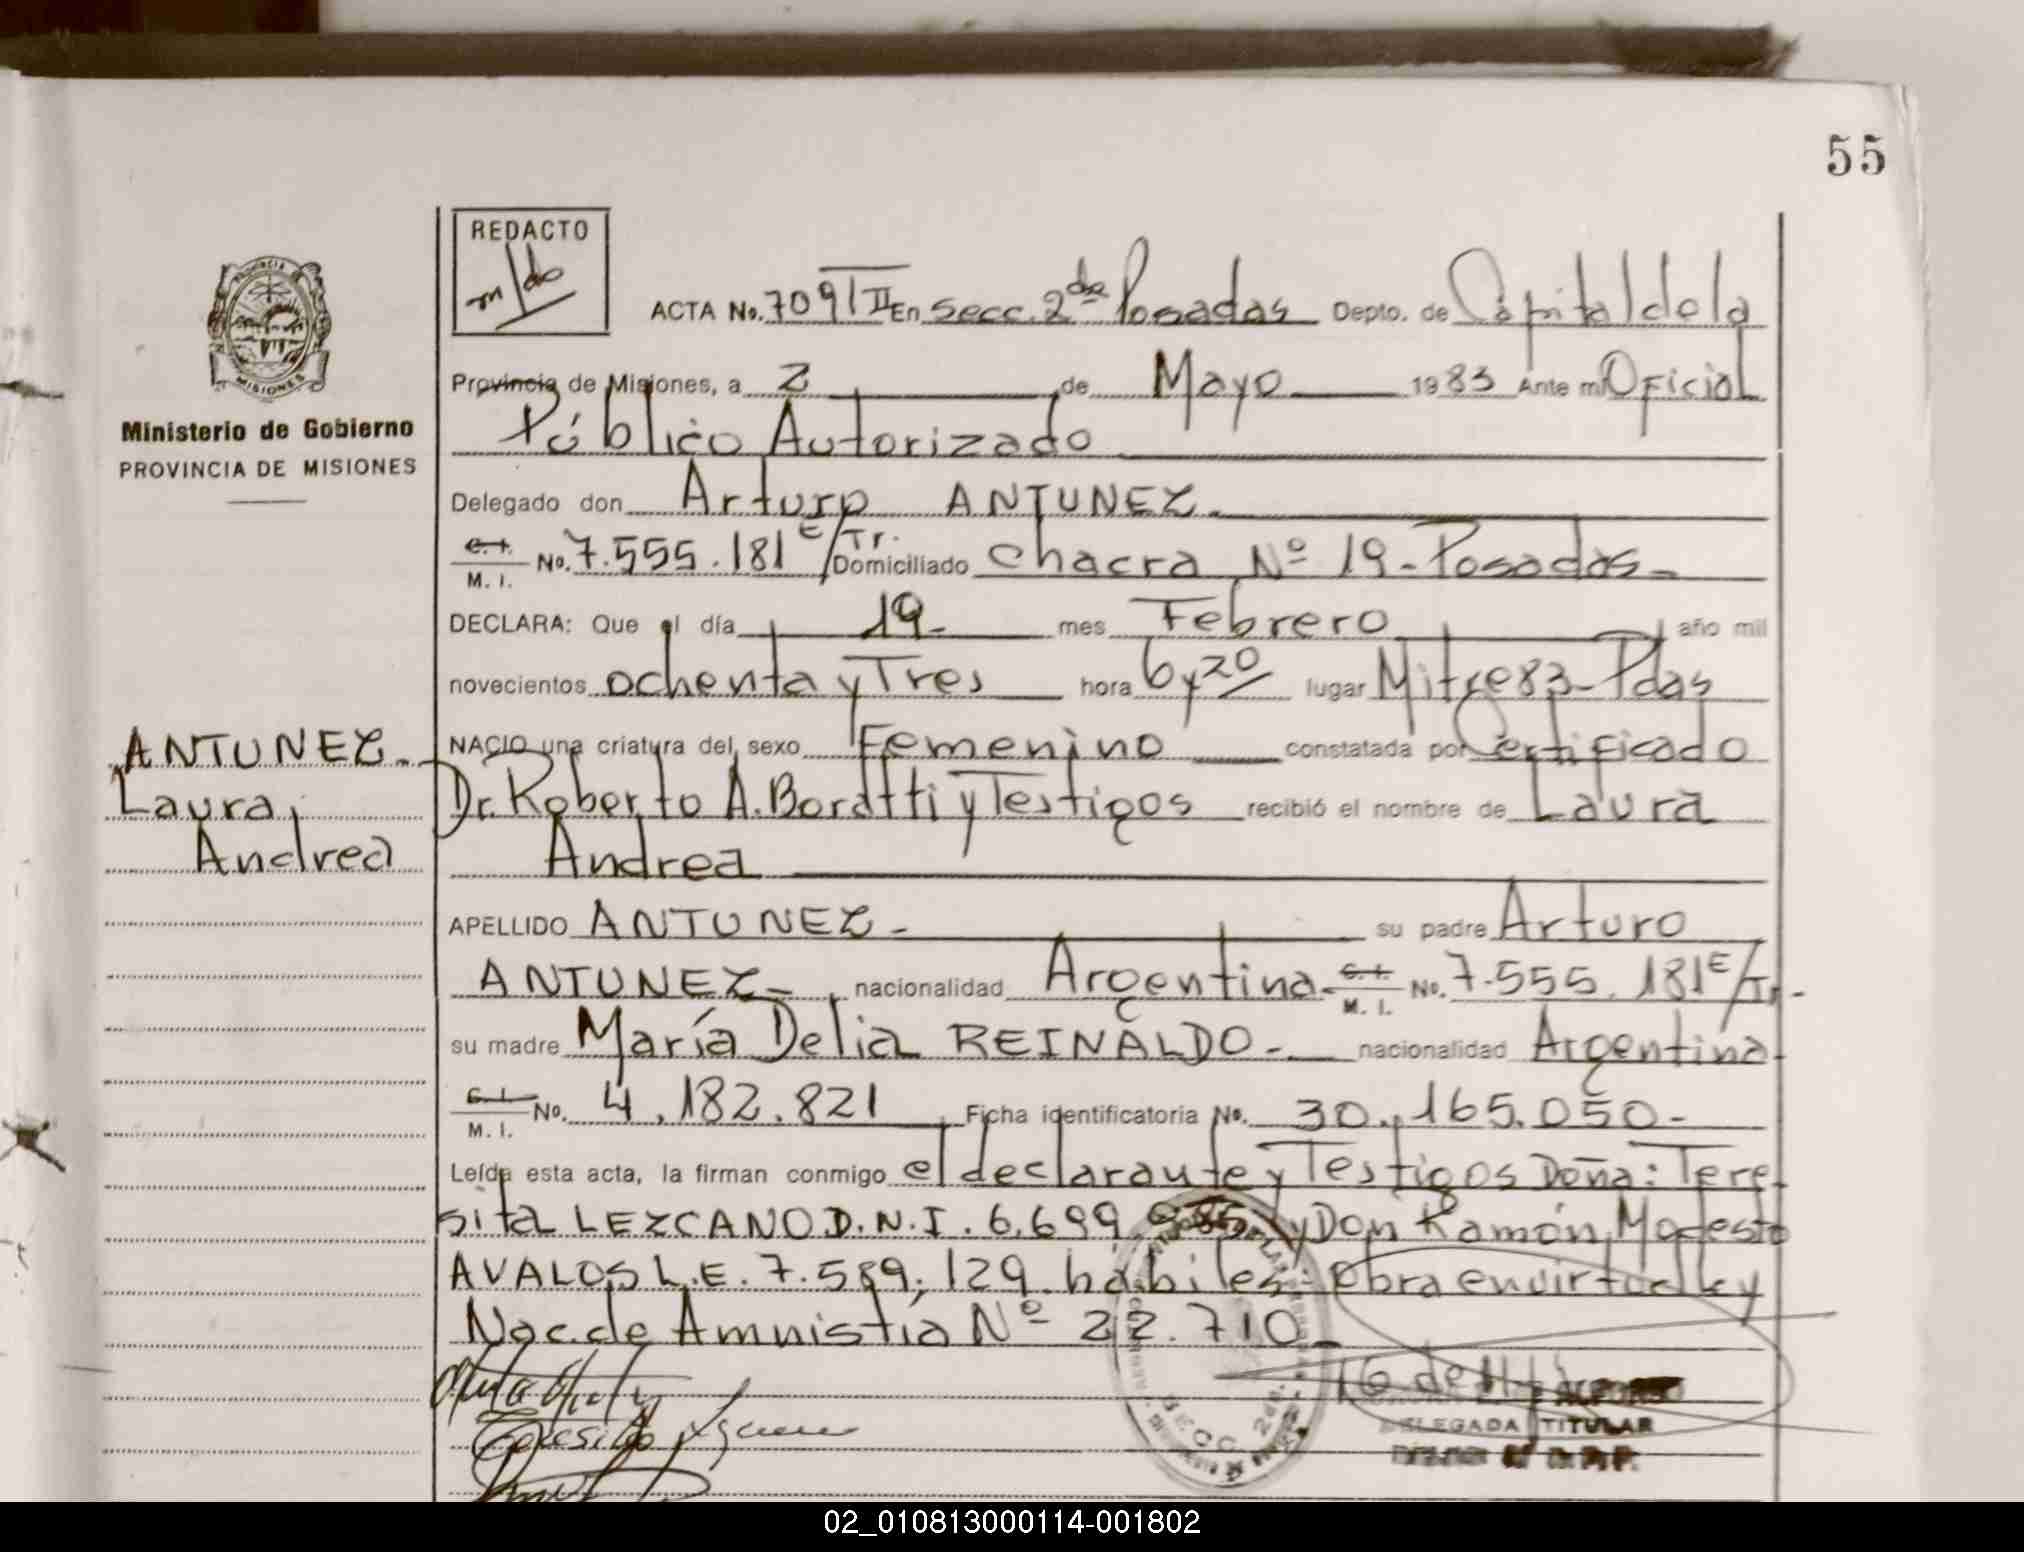 55
REDACTO
ACTA No. 709 II En Secc. 2da Posadas Depto. de Capital de la
Provincia de Misiones, a 2 de Mayo 1983 Ante mí Oficial
Público Autorizado
Ministerio de Gobierno
PROVINCIA DE MISIONES
Delegado don Arturo ANTUNEZ.
C.I. M. I. No. 7.555.181 E/Tr. Domiciliado Chacra Nº 19 - Posadas -
DECLARA: Que el día 19- mes Febrero año mil
novecientos ochenta y Tres hora 6 y 20 lugar Mitre 83 - Pdas
NACIO una criatura del sexo Femenino constatada por Certificado
ANTUNEZ -
Laura
Andrea
Dr. Roberto A. y Testigos recibió el nombre de Laura
Andrea
APELLIDO ANTUNEZ - su padre Arturo
ANTUNEZ - nacionalidad Argentina - C.I. M. I. No. 7.555.181 E/Tr. -
su madre María Delia REINALDO - nacionalidad Argentina
C.I. M. I. No. 4.182.821 Ficha identificatoria No. 30.165.050 -
Leída esta acta, la firman conmigo el declarante y Testigos Doña: Tere
sita LEZCANO D.N.I. 6.699. y Don Ramón Modesto
AVALOS L.E. 7.589.129 hábiles - Obra en virtud ley
Nac. de Amnistía Nº 22.710 -
DELEGADA TITULAR
02_010813000114-001802